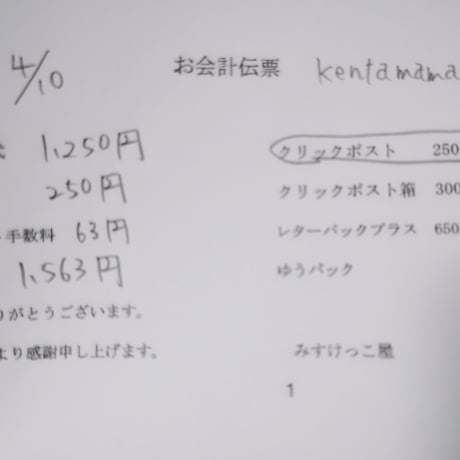 4/10
お会計伝票 kentamama
1,250円
クリックポスト 250
250円
クリックポスト箱 300
手数料 63円
レターパックプラス 650
1,563円
ゆうパック
りがとうございます。
より感謝申し上げます。
みすけっこ屋
1